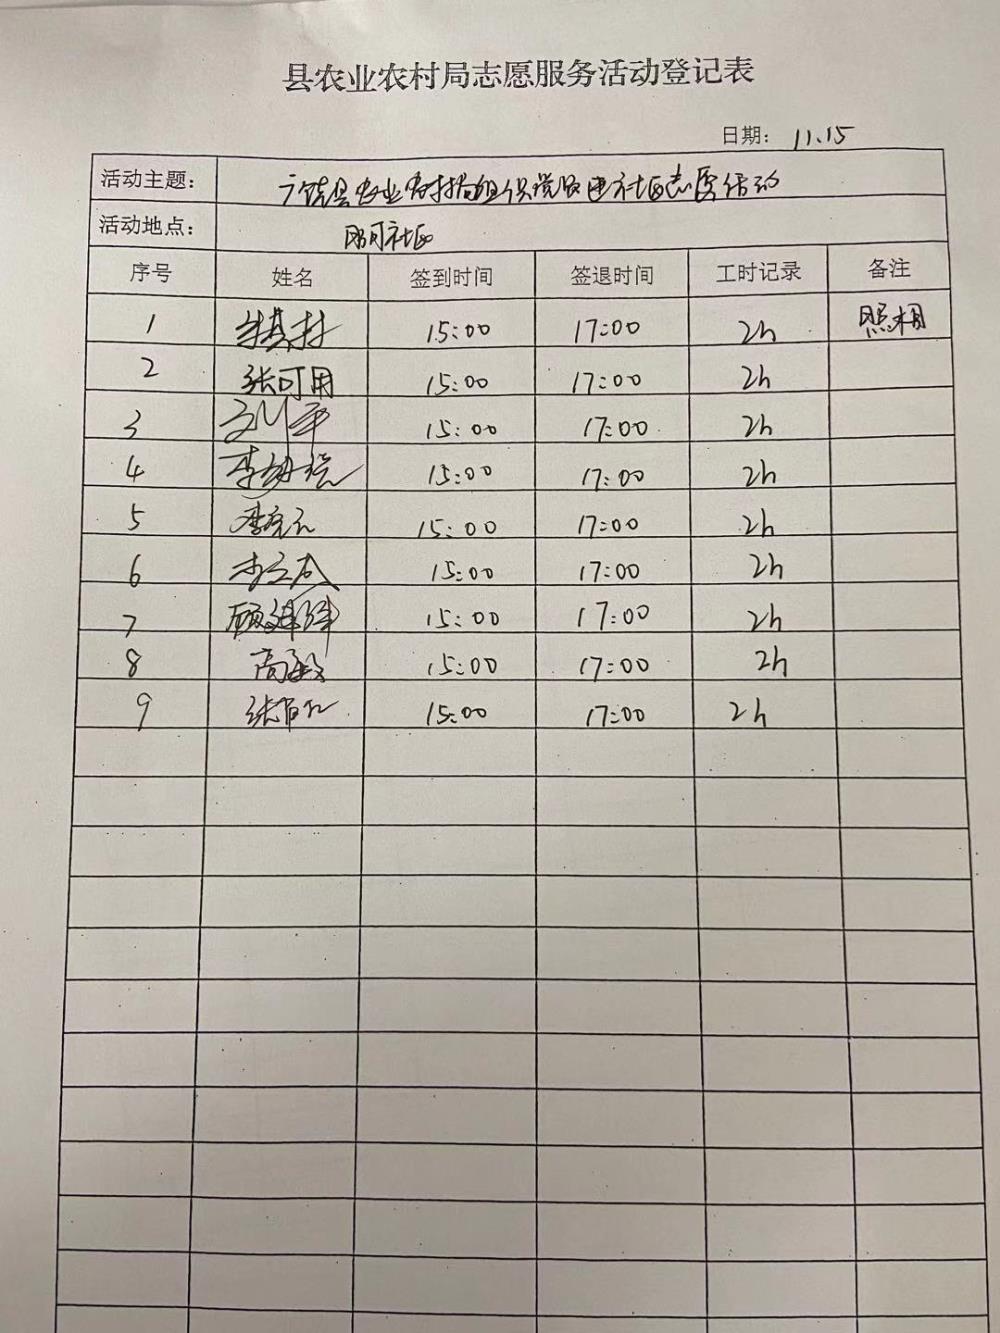 县农业农村局志愿服务活动登记表
日期： 11.15
活动主题： 广饶县农业农村局组织 社区志愿活动
活动地点： 社区
序号 姓名 签到时间 签退时间 工时记录 备注
1 15:00 17:00 2h 照相
2 张可用 15:00 17:00 2h
3 15:00 17:00 2h
4 15:00 17:00 2h
5 15:00 17:00 2h
6 15:00 17:00 2h
7 15:00 17:00 2h
8 高敏 15:00 17:00 2h
9 15:00 17:00 2h